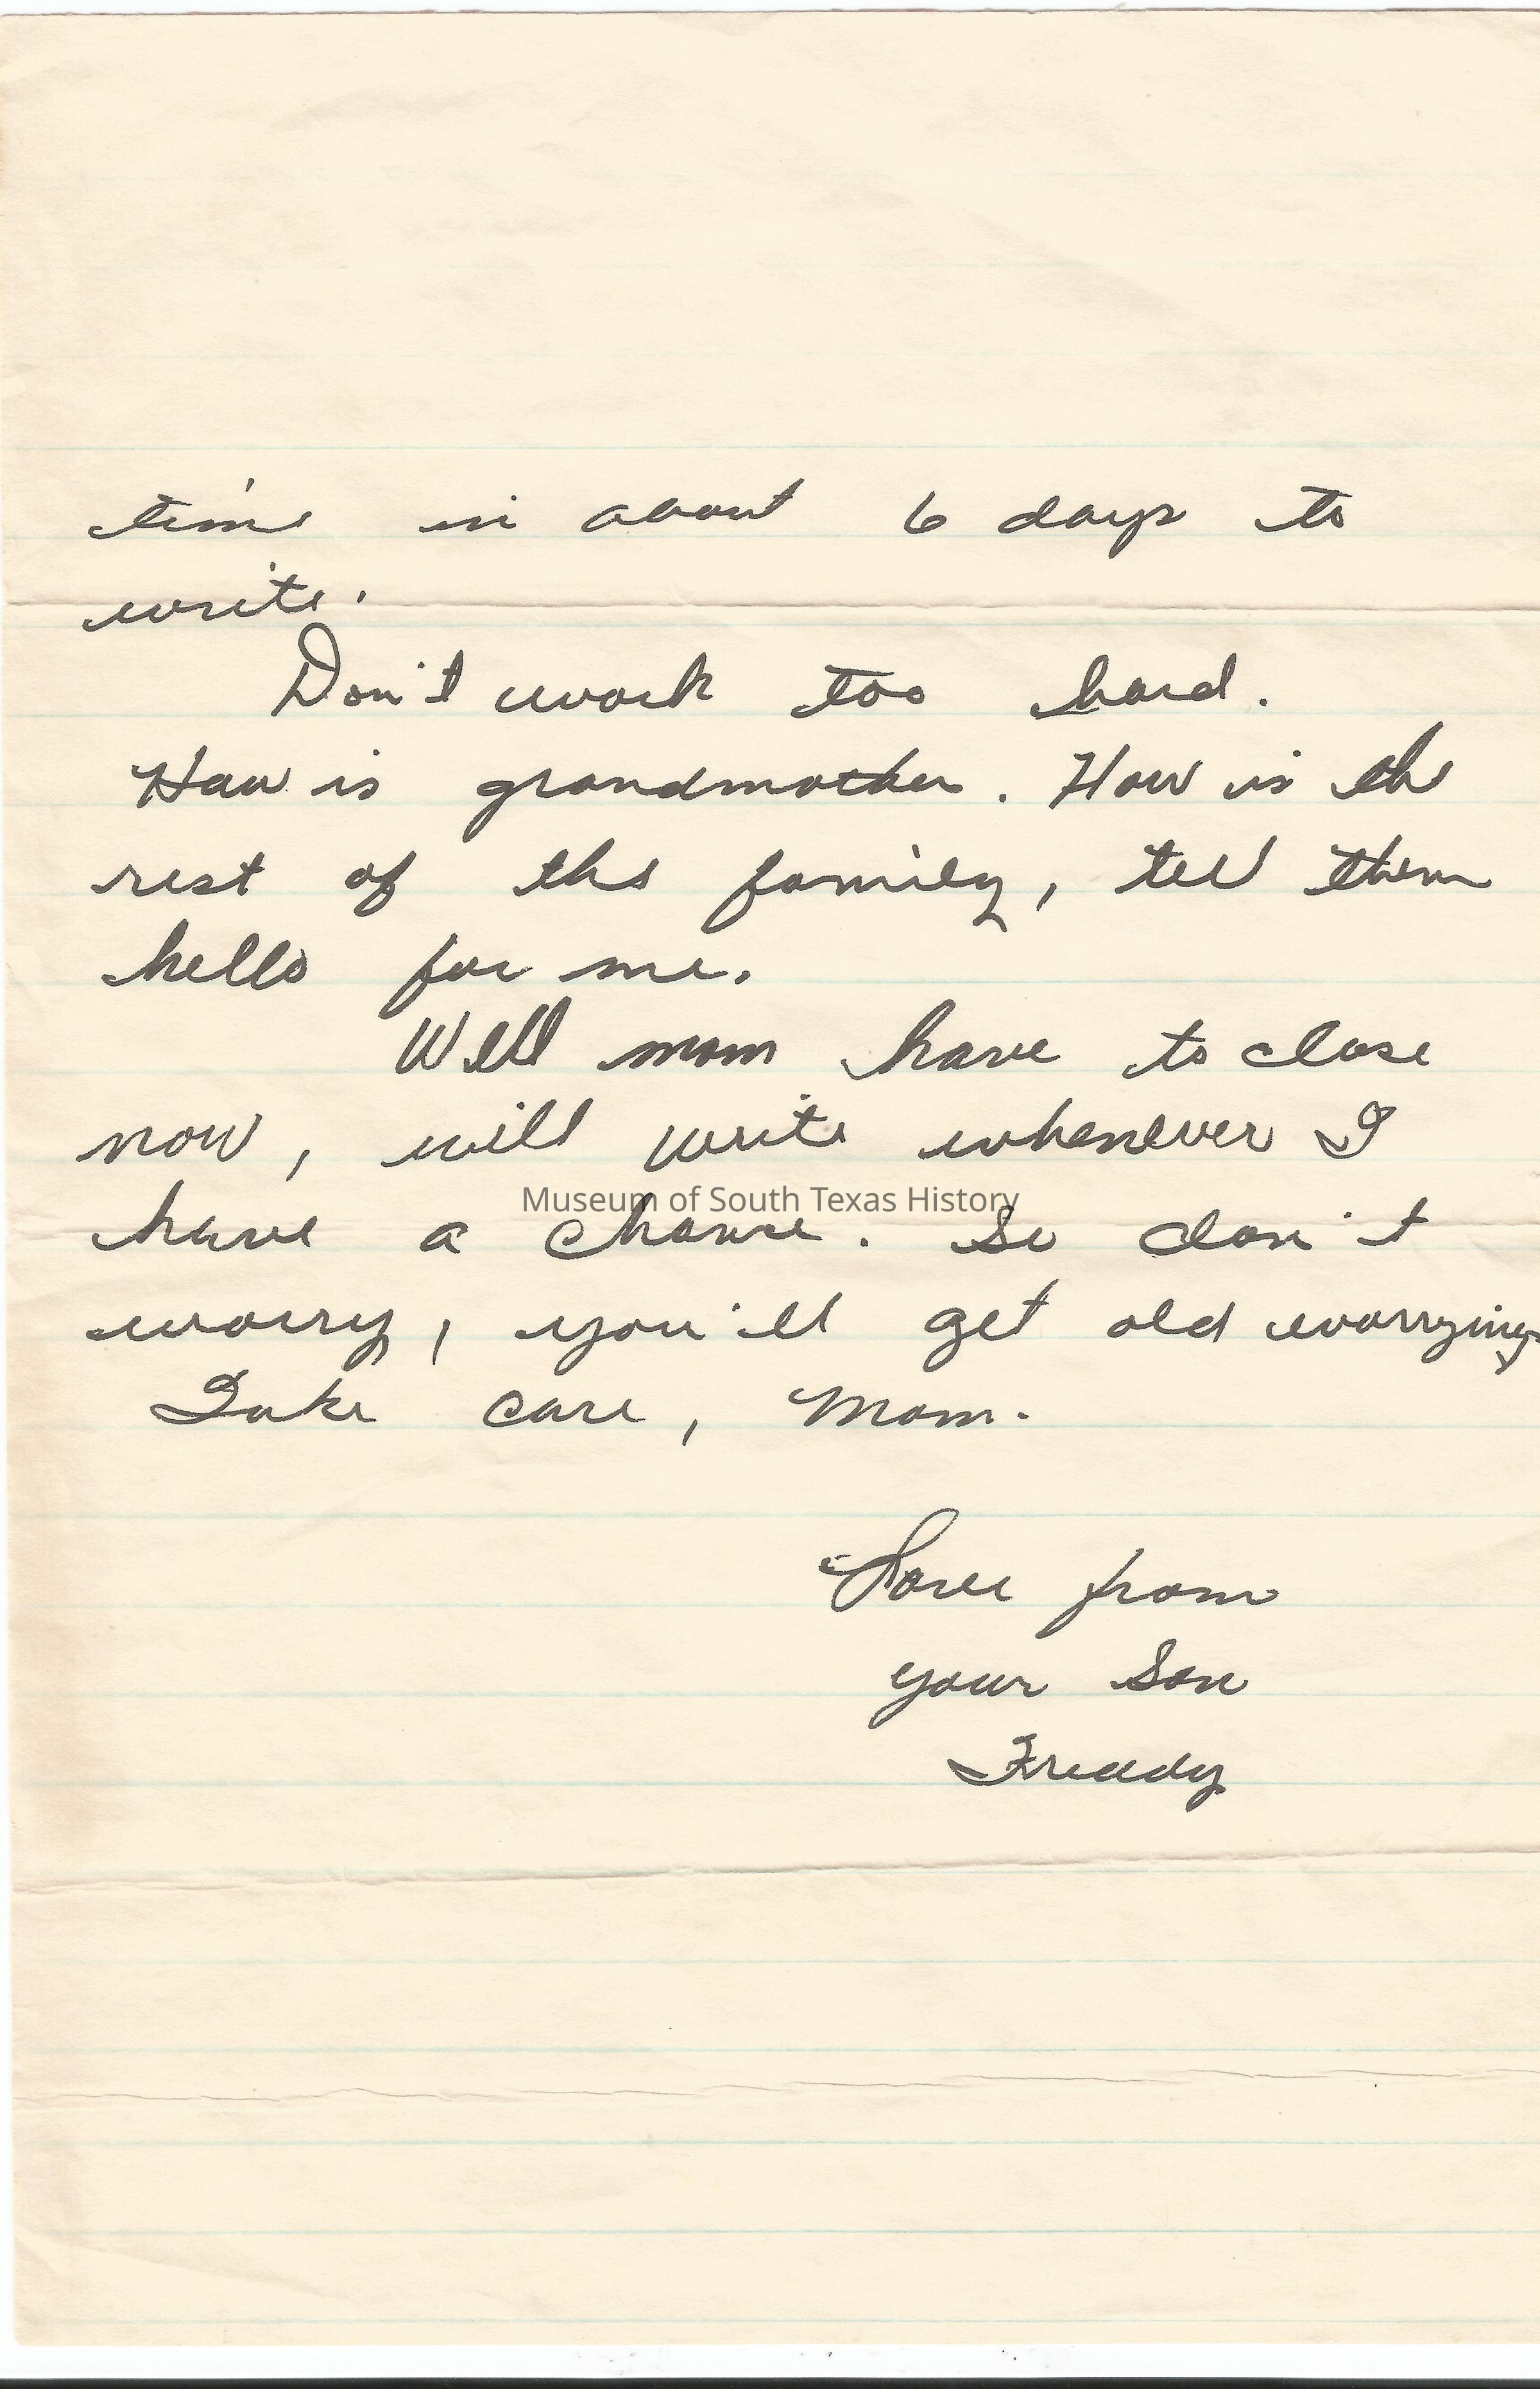 time in about 6 days to
write.
Don't work too hard.
How is grandmother. How is the
rest of the family, tell them
hello for me.
Well mom have to close
now, will write whenever I
Museum of South Texas History
have a chance. So don't
worry, you'll get old worrying
Take care, Mom.
Love from
your Son
Freddy